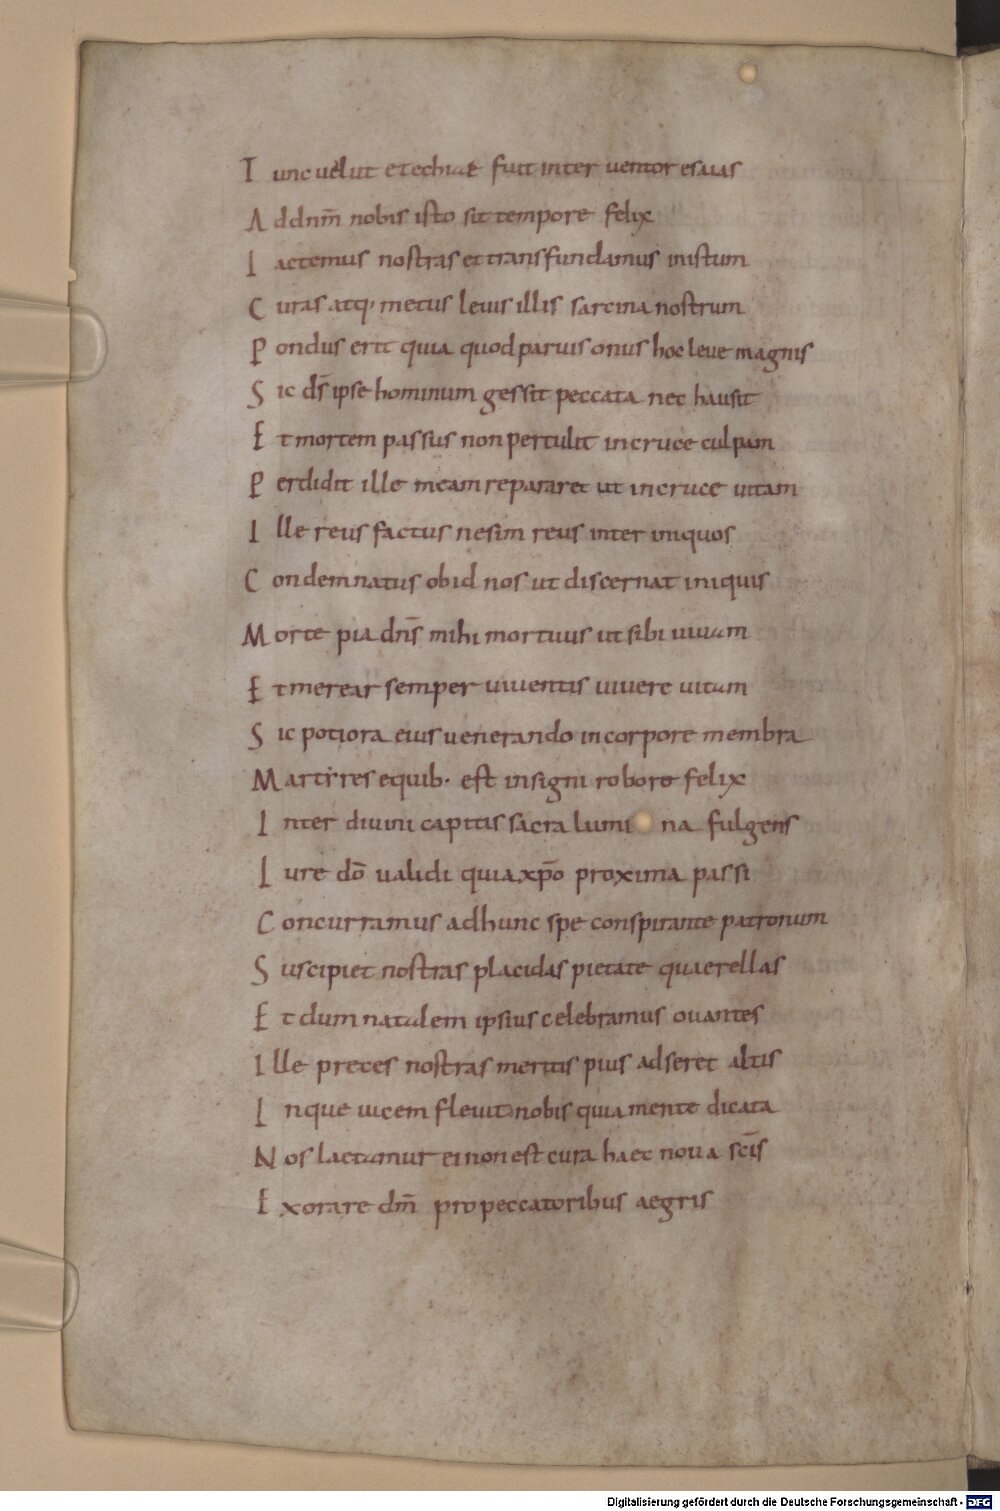 Tunc uelut etechiae fuit inter uentor esaias
Ad dnm̄ nobis isto sit tempore felix
Iactemus nostras et transfundamus in istum
Curas atq; metus leuis illis sarcina nostrum
Pondus erit quia quod paruis onus hoc leue magnis
Sic ds̄ ipse hominum gessit peccata nec hausit
Et mortem passus non pertulit in cruce culpam
Perdidit ille meam repararet ut in cruce uitam
Ille reus factus ne sim reus inter iniquos
Condemnatus ob id nos ut discernat iniquis
Morte pia dn̄s mihi mortuus ut sibi uiuam
Et merear semper uiuentis uiuere uitam
Sic potiora eius uenerando in corpore membra
Martires e quib· est insigni robore felix
Inter diuini capitis sacra lumina fulgens
Iure dō ualidi quia xp̄o proxima passi
Concurramus ad hunc spe conspirante patronum
Suscipiet nostras placidas pietate quaerellas
Et dum natalem ipsius celebramus ouantes
Ille preces nostras meritis pius adseret altis
Inque uicem fleuit nobis quia mente dicata
Nos laetamur ei non est cura haec noua scīs
Exorare dm̄ pro peccatoribus aegris
Digitalisierung gefördert durch die Deutsche Forschungsgemeinschaft - DFG